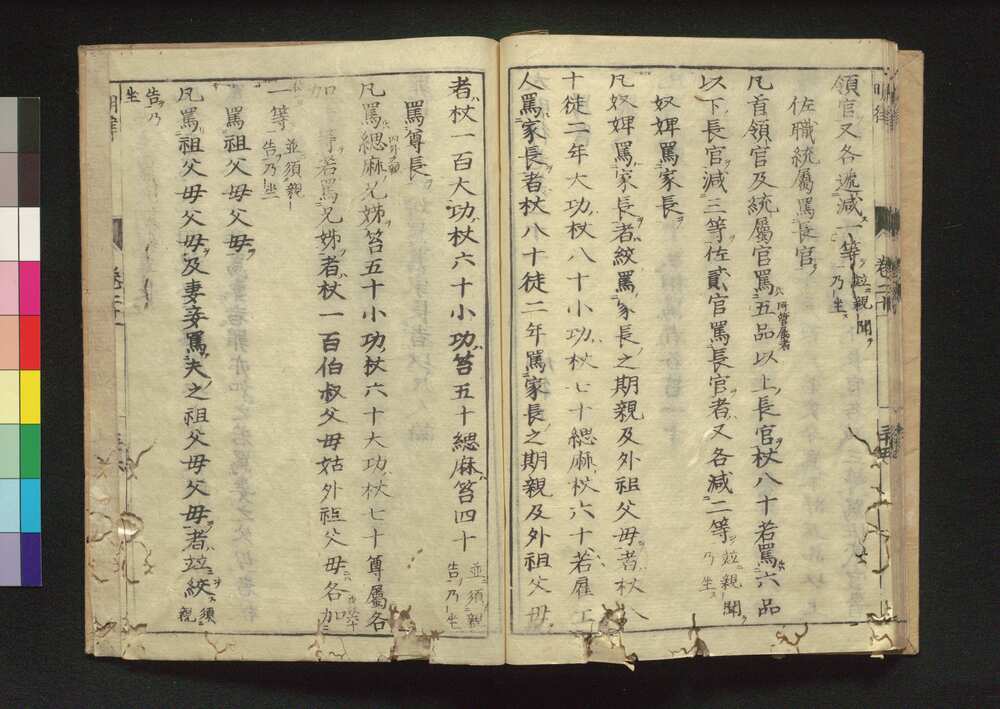 領官又各遞減一等 並親聞乃坐
佐職統屬罵長官
凡首領官及統屬官罵五品以上長官杖八十若罵六品
以下長官減三等佐貳官罵長官者又各減二等 並親聞乃坐
奴婢罵家長
凡奴婢罵家長者絞罵家長之期親及外祖父母者杖八
十徒二年大功杖八十小功杖七十緦麻杖六十若雇工
人罵家長者杖八十徒二年罵家長之期親及外祖父母
者杖一百大功杖六十小功笞五十緦麻笞四十 並須親告乃坐
罵尊長
凡罵緦麻兄姊笞五十小功杖六十大功杖七十尊屬各
加一等若罵兄姊者杖一百伯叔父母姑外祖父母各加
一等 並須親告乃坐
罵祖父母父母
凡罵祖父母父母及妻妾罵夫之祖父母父母者並絞 須親
告乃坐
明律
卷二十一